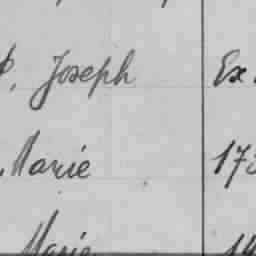 Joseph Ex
Marie 17
Marie